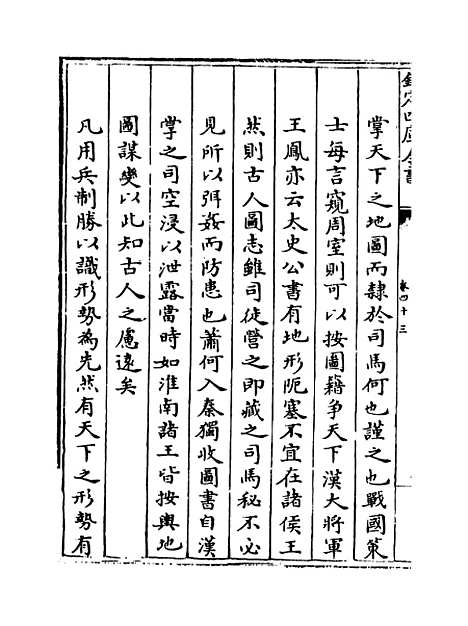 欽定四庫全書
卷四十三
掌天下之地圖而隸於司馬何也謹之也戰國策
士每言窺周室則可以按圖籍爭天下漢大將軍
王鳳亦云太史公書有地形阨塞不宜在諸侯王
然則古人圖志雖司徒營之即藏之司馬秘不必
見所以弭姦而防患也蕭何入秦獨收圖書自漢
掌之司空浸以泄露當時如淮南諸王皆按輿地
圖謀變以此知古人之慮遠矣
凡用兵制勝以識形勢為先然有天下之形勢有